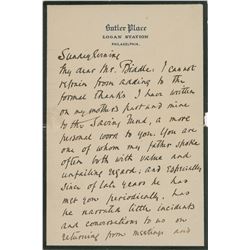 Butler Place
LOGAN STATION
PHILADELPHIA.
Sunday Evening
My dear Mr. Biddle. I cannot
refrain from adding to the
formal thanks I have written
on my mother's part and mine
to the Saving Fund, a more
personal word to you. You are
one of whom my father spoke
often both with value and
unfailing regard; and especially
since of late years he has
met you periodically, has
he narrated little incidents
and conversations to us on
returning from meetings and